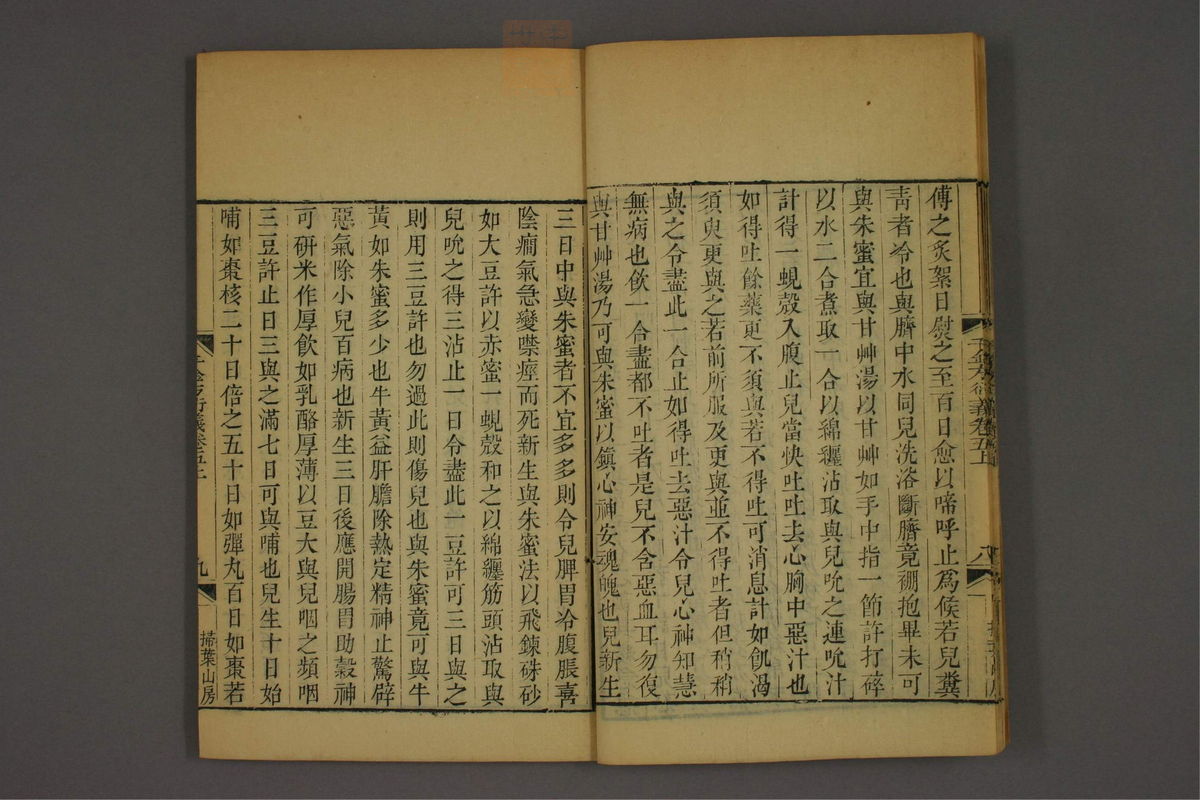 傅之炙絮日熨之至百日愈以啼呼止爲候若兒糞
靑者冷也與臍中水同兒洗浴斷臍竟綳抱畢未可
與朱蜜宜與甘艸湯以甘艸如手中指一節許打碎
以水二合煮取一合以綿纒沾取與兒吮之連吮汁
計得一蜆殻入腹止兒當快吐吐去心胸中惡汁也
如得吐餘藥更不須與若不得吐可消息計如飢渴
須臾更與之若前所服及更與並不得吐者但稍稍
與之令盡此一合止如得吐去惡汁令兒心神知慧
無病也飲一合盡都不吐者是兒不含惡血耳勿復
與甘艸湯乃可與朱蜜以鎭心神安魂魄也兒新生
千金方衍義卷五上
八
三日中與朱蜜者不宜多多則令兒脾胃冷腹脹喜
陰癎氣急變噤痙而死新生與朱蜜法以飛鍊硃砂
如大豆許以赤蜜一蜆殻和之以綿纒筯頭沾取與
兒吮之得三沾止一日令盡此一豆許可三日與之
則用三豆許也勿過此則傷兒也與朱蜜竟可與牛
黃如朱蜜多少也牛黃益肝膽除熱定精神止驚辟
惡氣除小兒百病也新生三日後應開腸胃助穀神
可研米作厚飲如乳酪厚薄以豆大與兒咽之頻咽
三豆許止日三與之滿七日可與哺也兒生十日始
哺如棗核二十日倍之五十日如彈丸百日如棗若
千金方衍義卷五上
九
掃葉山房